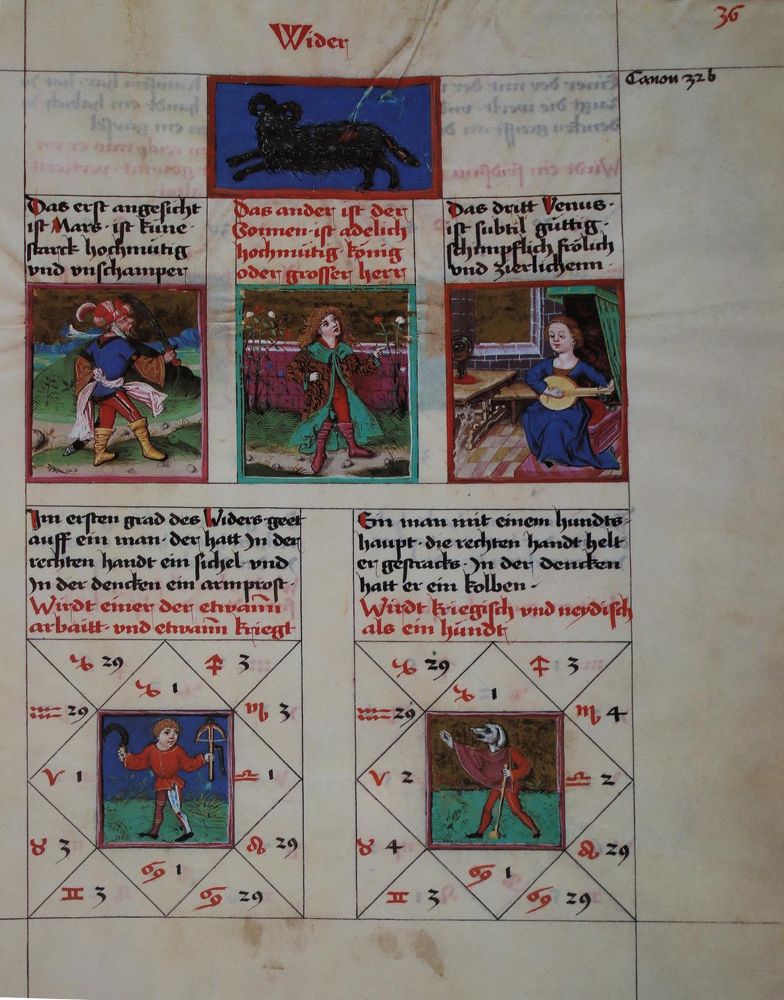 36
Wider
Canon 32 b
Das erst angesicht
ist Mars · ist küne ·
starck hochmütig
vnd vnschamper
Das ander ist der
Sonnen · ist adelich
hochmütig · könig
oder grosser herr
Das dritt Venus ·
ist subtil güttig ·
schimpflich frölich
vnd zierlichenn
Im ersten grad des Widers · geet
auff ein man · der hatt Jn der
rechten handt ein sichel · vnd
Jn der dencken ein armprost ·
Wirdt einer der etwann
arbaitt · vnd etwann kriegt
Ein man mit einem hundts
haupt · die rechten handt helt
er gestracks · Jn der dencken
hatt er ein kolben ·
Wirdt kriegisch vnd neydisch
als ein hundt
♑ 29 ♐ 3
♑ 1
♒ 29 ♏ 3
♈ 1 ♎ 1
♉ 3 ♌ 29
♋ 1
♊ 3 ♋ 29
♑ 29 ♐ 3
♑ 1
♒ 29 ♏ 4
♈ 2 ♎ 2
♉ 4 ♌ 29
♋ 1
♊ 3 ♋ 29